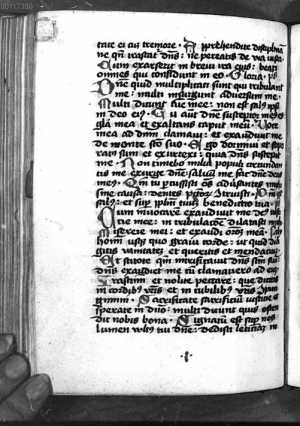 tate ei cu tremore. Apprehendite disciplinā
ne qn̄ irascat̄ dn̄s: ne pereatis de via iusta.
Cum exarserit in brevi ira eius: beati
omnes qui confidunt in eo. Gloria p
Dn̄e quid multiplicati sunt qui tribulant
me: multi insurgunt adversum me.
Multi dicunt aīe mee: non est sal ipsi
in deo ei. Tu aūt dn̄e susceptor me es
glā mea et exaltans caput meū. Voce
mea ad dnm clamavi: et exaudivit me
de monte sco suo. Ego dormivi et sopo
ratus sum et exurrexi: quia dn̄s suscepit
me. Non timebo milia populi circundan
tis me exurge dn̄e: salvū me fac dn̄e deus
meus. Qm tu pcussisti oēs adversantes m
sine causa: dentes pctor
sal: et sup pplm tuū benedictio tua.
Cum invocarē exaudivit me deus ius
ticie mee: in tribulatōe dilatasti m
Miserere mei: et exaudi orōez meā. Filii
hoim usq quo gravi corde: ut quid dili
gitis vanitatez et queritis mendaciū.
Et scitote qm mirificavit dn̄s scm suū
dn̄s exaudiet me cū clamavero ad eū.
Irascimi et nolite peccare: que dicitis
in cordib vris et in cubilib vris
gimini. Sacrificate sacrificiū iusticie et
sperate in dno: multi dicunt quis osten
dit nobis bona. Signatū est sup nos
lumen vult tui dn̄e: dedisti leticiā in